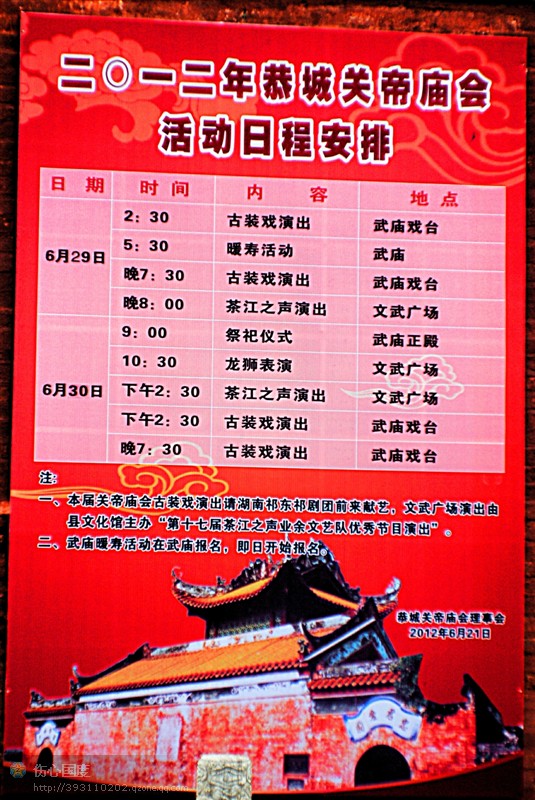 二〇一二年恭城关帝庙会
活动日程安排
日 期 时 间 内 容 地 点
6月29日
2：30 古装戏演出 武庙戏台
5：30 暖寿活动 武庙
晚7：30 古装戏演出 武庙戏台
晚8：00 茶江之声演出 文武广场
6月30日
9：00 祭祀仪式 武庙正殿
10：30 龙狮表演 文武广场
下午2：30 茶江之声演出 文武广场
下午2：30 古装戏演出 武庙戏台
晚7：30 古装戏演出 武庙戏台
注：
一、本届关帝庙会古装戏演出请湖南祁东祁剧团前来献艺，文武广场演出由
县文化馆主办“第十七届茶江之声业余文艺队优秀节目演出”。
二、武庙暖寿活动在武庙报名，即日开始报名。
恭城关帝庙会理事会
2012年6月21日
伤心国度
http://393110202.qzone.qq.com